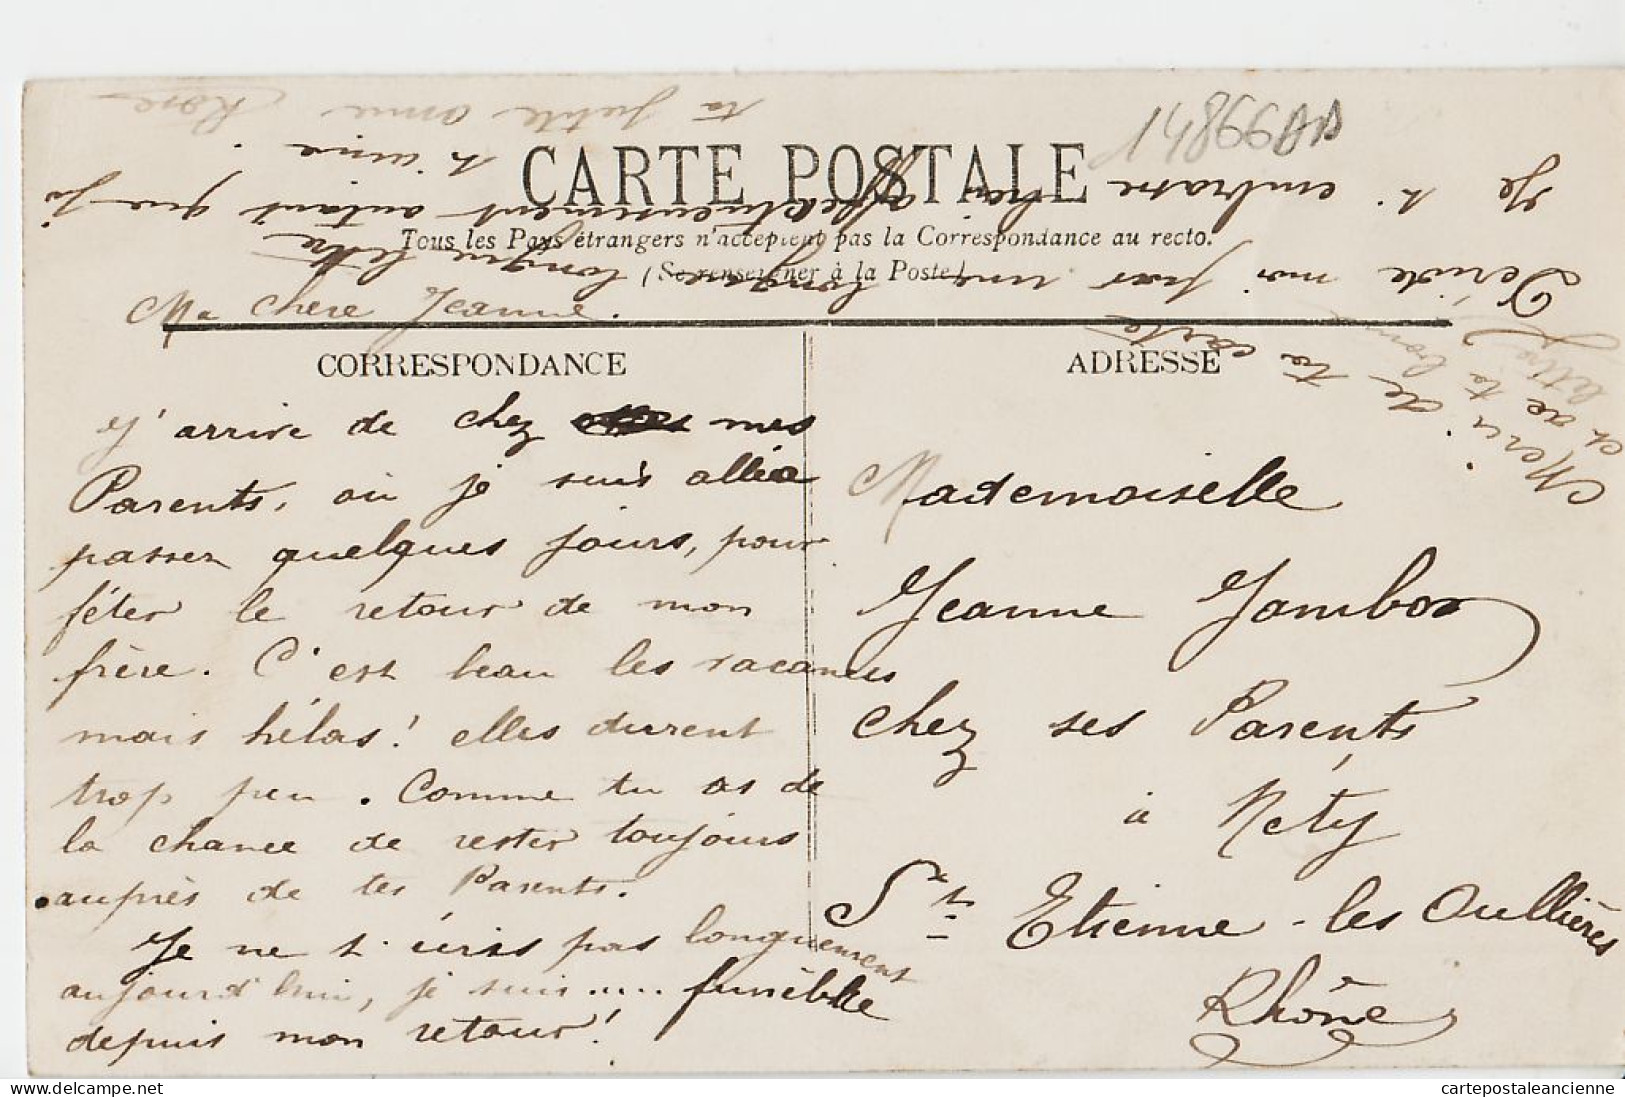 14866AA
CARTE POSTALE
Tous les Pays étrangers n'acceptent pas la Correspondance au recto.
(Se renseigner à la Poste)
CORRESPONDANCE
Ma chere Jeanne.
J'arrive de chez mes
Parents, où je suis allée
passer quelques jours, pour
fêter le retour de mon
frère. C'est beau les vacances
mais hélas! elles durent
trop peu. Comme tu as de
la chance de rester toujours
auprès de tes Parents.
Je ne t'écris pas longuement
aujourd'hui, je suis ..... funèbre
depuis mon retour!
Déride moi par une longue lettre
Je t'embrasse bien affectueusement autant que je
t'aime.
ta petite amie Rose
Merci de ta carte
et de ta bonne
lettre
ADRESSE
Mademoiselle
Jeanne Jambon
chez ses Parents
à Néty
St Etienne-les Oullières
Rhône
cartepostaleancienne